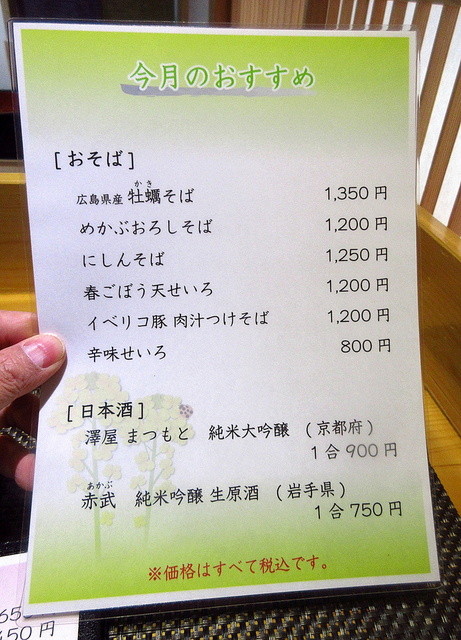 今月のおすすめ
[おそば]
広島県産 牡蠣そば 1,350 円
かき
めかぶおろしそば 1,200 円
にしんそば 1,250 円
春ごぼう天せいろ 1,200 円
イベリコ豚 肉汁つけそば 1,200 円
辛味せいろ 800 円
[日本酒]
澤屋 まつもと 純米大吟醸 (京都府)
1合 900 円
あかぶ
赤武 純米吟醸 生原酒 (岩手県)
1合 750 円
※価格はすべて税込です。
65
450 円